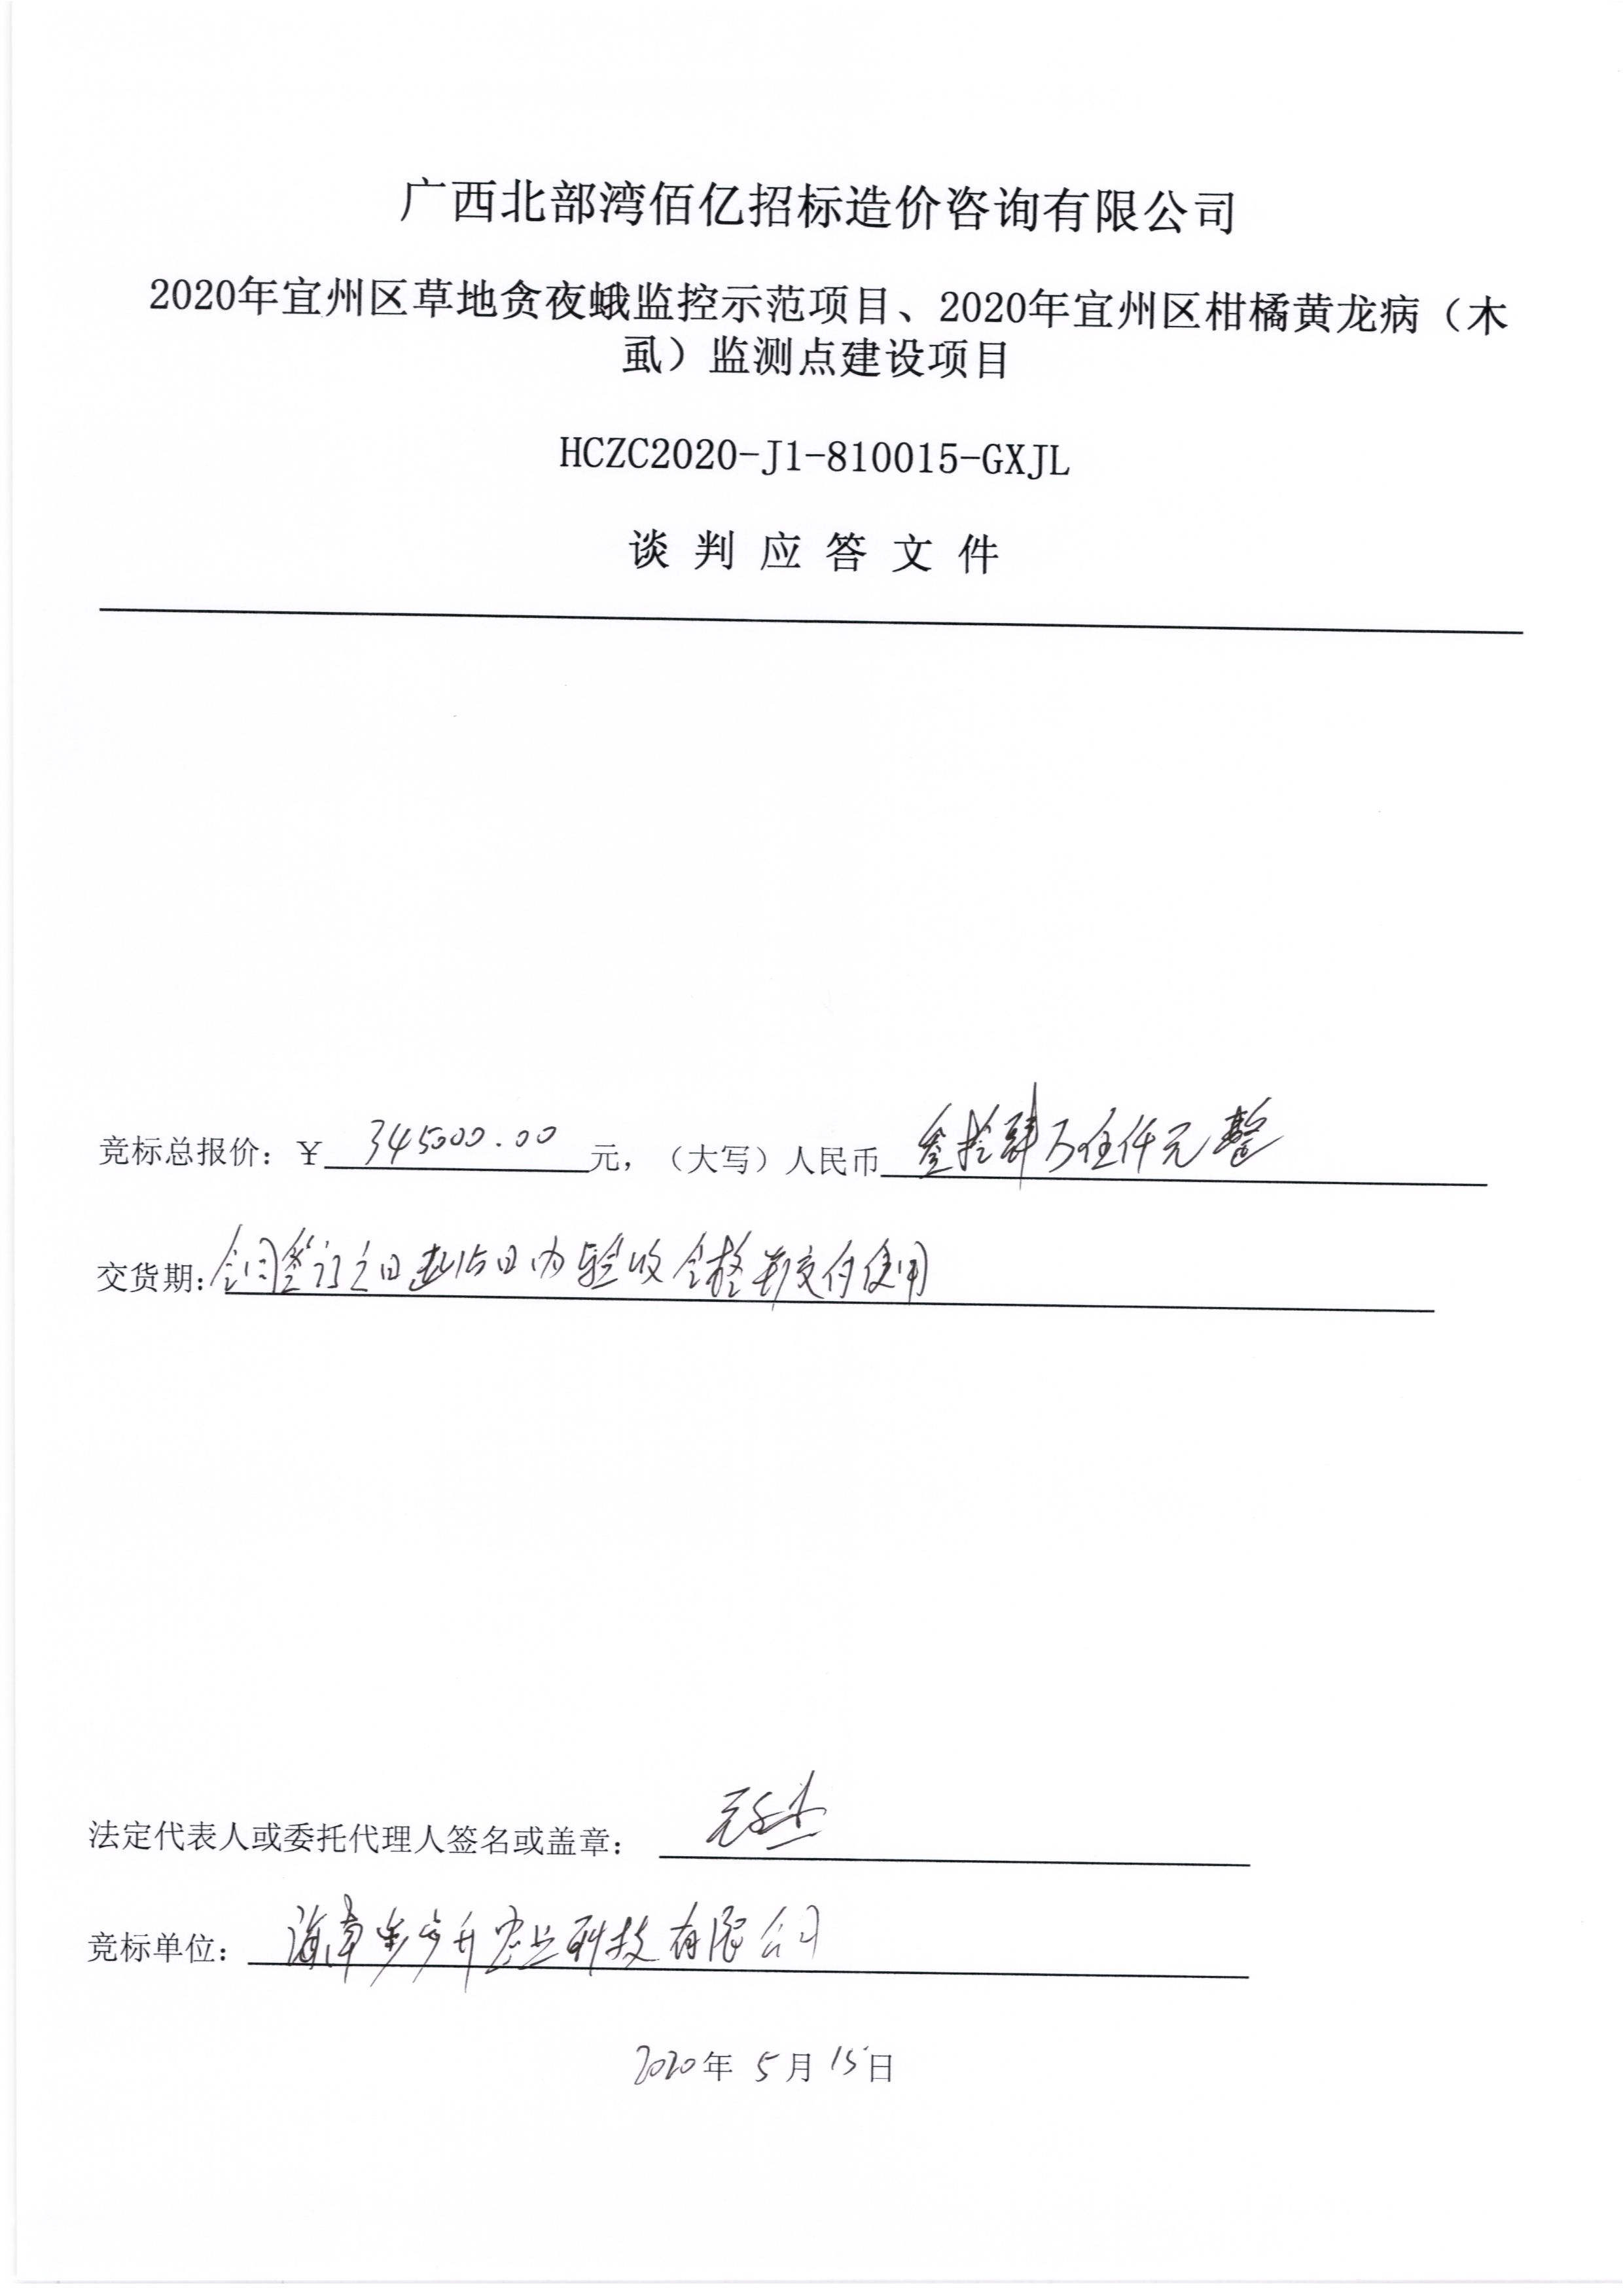 广西北部湾佰亿招标造价咨询有限公司
2020年宜州区草地贪夜蛾监控示范项目、2020年宜州区柑橘黄龙病（木
虱）监测点建设项目
HCZC2020-J1-810015-GXJL
谈判应答文件
竞标总报价：￥345000.00元，（大写）人民币叁拾肆万伍仟元整
交货期：合同签订之日起15日内验收合格并交付使用
法定代表人或委托代理人签名或盖章：
竞标单位：海南步步升农业科技有限公司
2020年5月15日